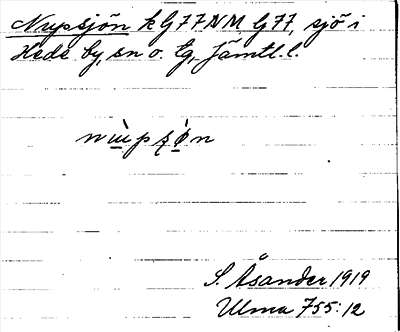 Nupsjön k G77NM, G77, sjö i
Hede by, sn o. tg, Jämtl. l.
S. Åsander 1919
Ulma 755:12